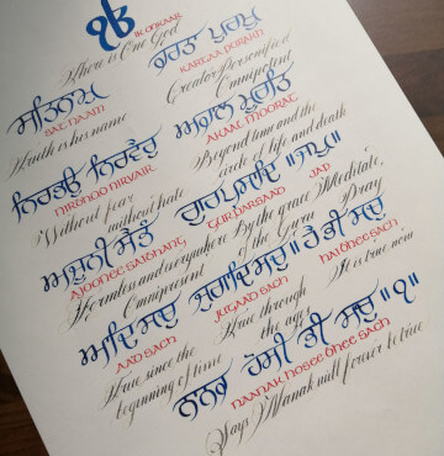 ੴ
IK ONKAAR
There is One God
ਕਰਤਾ ਪੁਰਖੁ
KARTAA PURAKH
Creator Personified
Omnipotent
ਸਤਿਨਾਮੁ
SAT NAAM
Truth is his name
ਅਕਾਲ ਮੂਰਤਿ
AKAAL MOORAT
Beyond time and the
circle of life and death
ਨਿਰਭਉ ਨਿਰਵੈਰੁ
NIRBHOO NIRVAIR
Without fear
without hate
ਗੁਰਪ੍ਰਸਾਦਿ ॥ਜਪੁ॥
GURPARSAAD JAP
By the grace
of the Guru
Meditate,
Pray
ਅਜੂਨੀ ਸੈਭੰ
AJOONEE SAIBHANG
Formless and everywhere
Omnipresent
ਆਦਿ ਸਚੁ
AAD SACH
True since the
beginning of time
ਜੁਗਾਦਿ ਸਚੁ॥
JUGAAD SACH
True through
the ages
ਹੈ ਭੀ ਸਚੁ
HAI BHEE SACH
It is true now
ਨਾਨਕ ਹੋਸੀ ਭੀ ਸਚੁ ॥੧॥
NAANAK HOSEE BHEE SACH
Says Nanak will forever be true